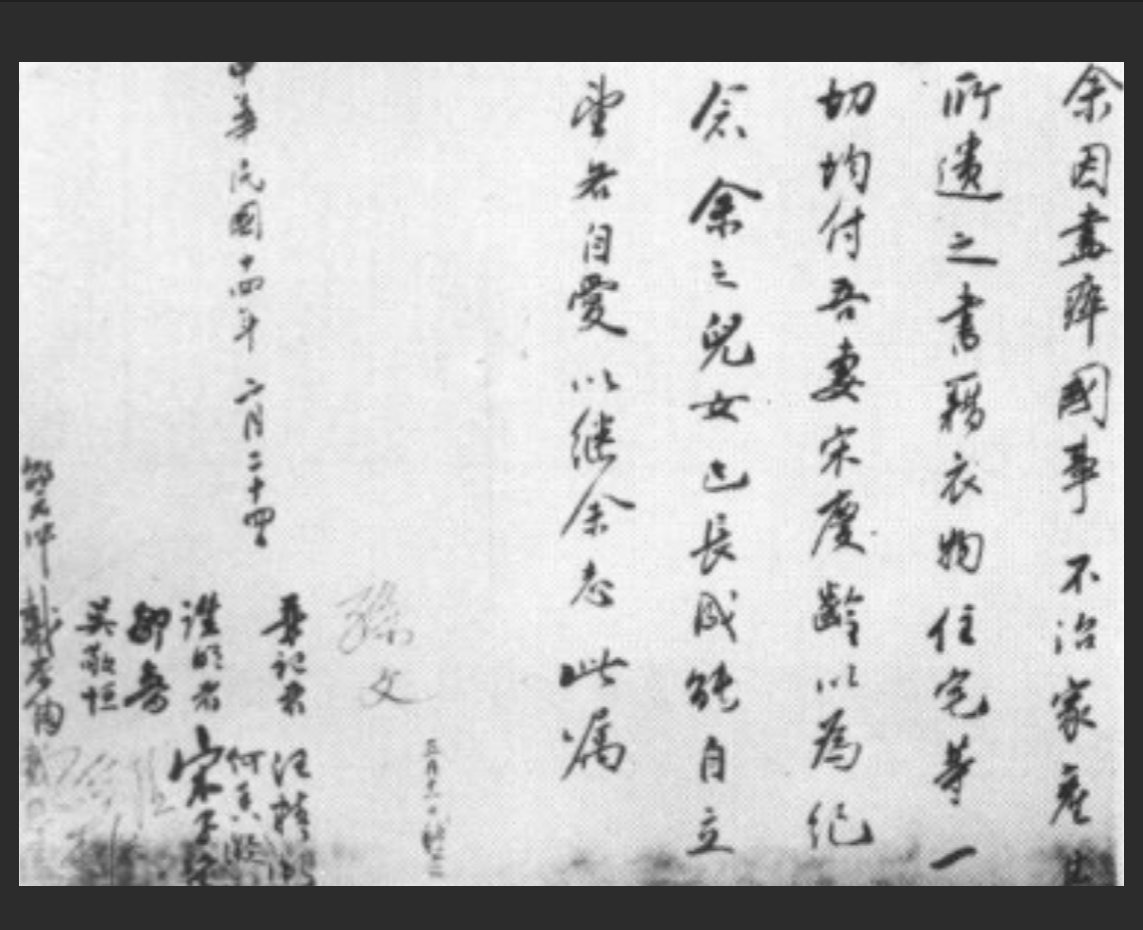 余因盡瘁國事不治家產
所遺之書籍衣物住宅等一
切均付吾妻宋慶齡以為紀
念余之兒女已長成能自立
望各自愛以继余志此嘱
三月十一日補
孫文
筆記者 汪精衛
中華民國十四年 二月二十四
何香凝
證明者 宋子文
鄒魯
吳敬恒
邵元冲 戴季陶